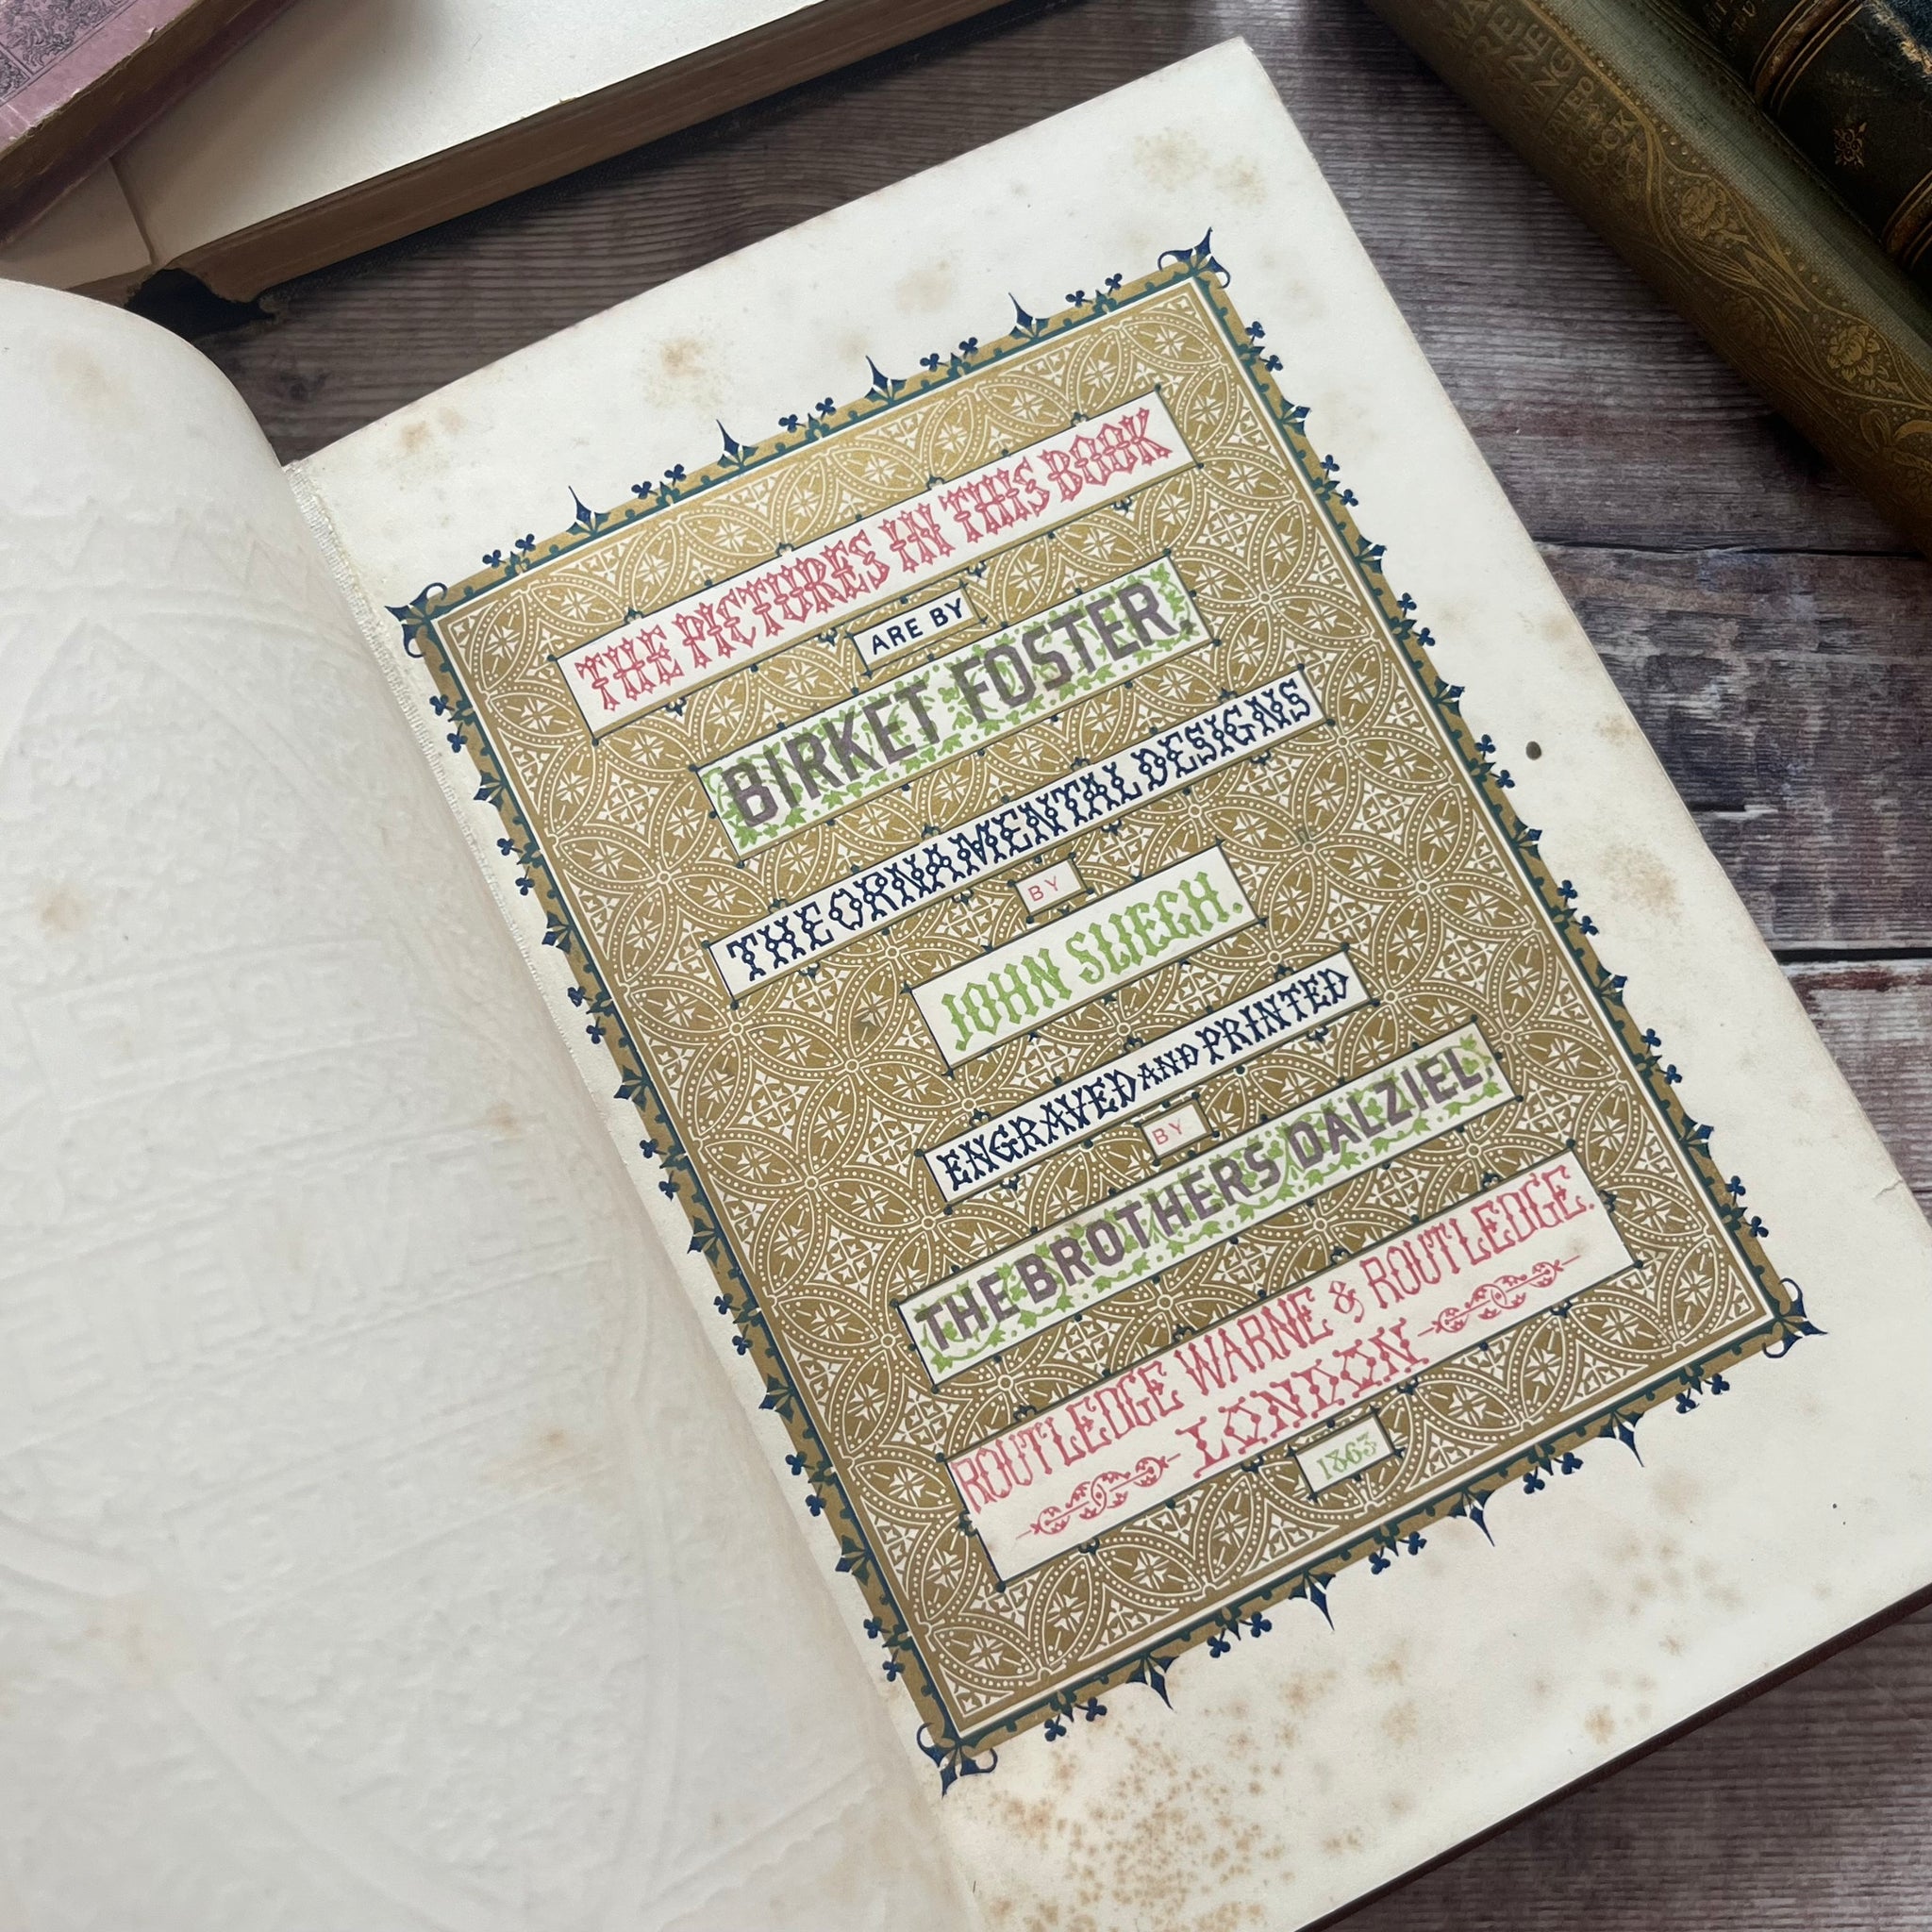 THE PICTURES IN THIS BOOK
ARE BY
BIRKET FOSTER.
THE ORNAMENTAL DESIGNS
BY
JOHN SLIEGH.
ENGRAVED AND PRINTED
BY
THE BROTHERS DALZIEL.
ROUTLEDGE WARNE & ROUTLEDGE.
LONDON
1863